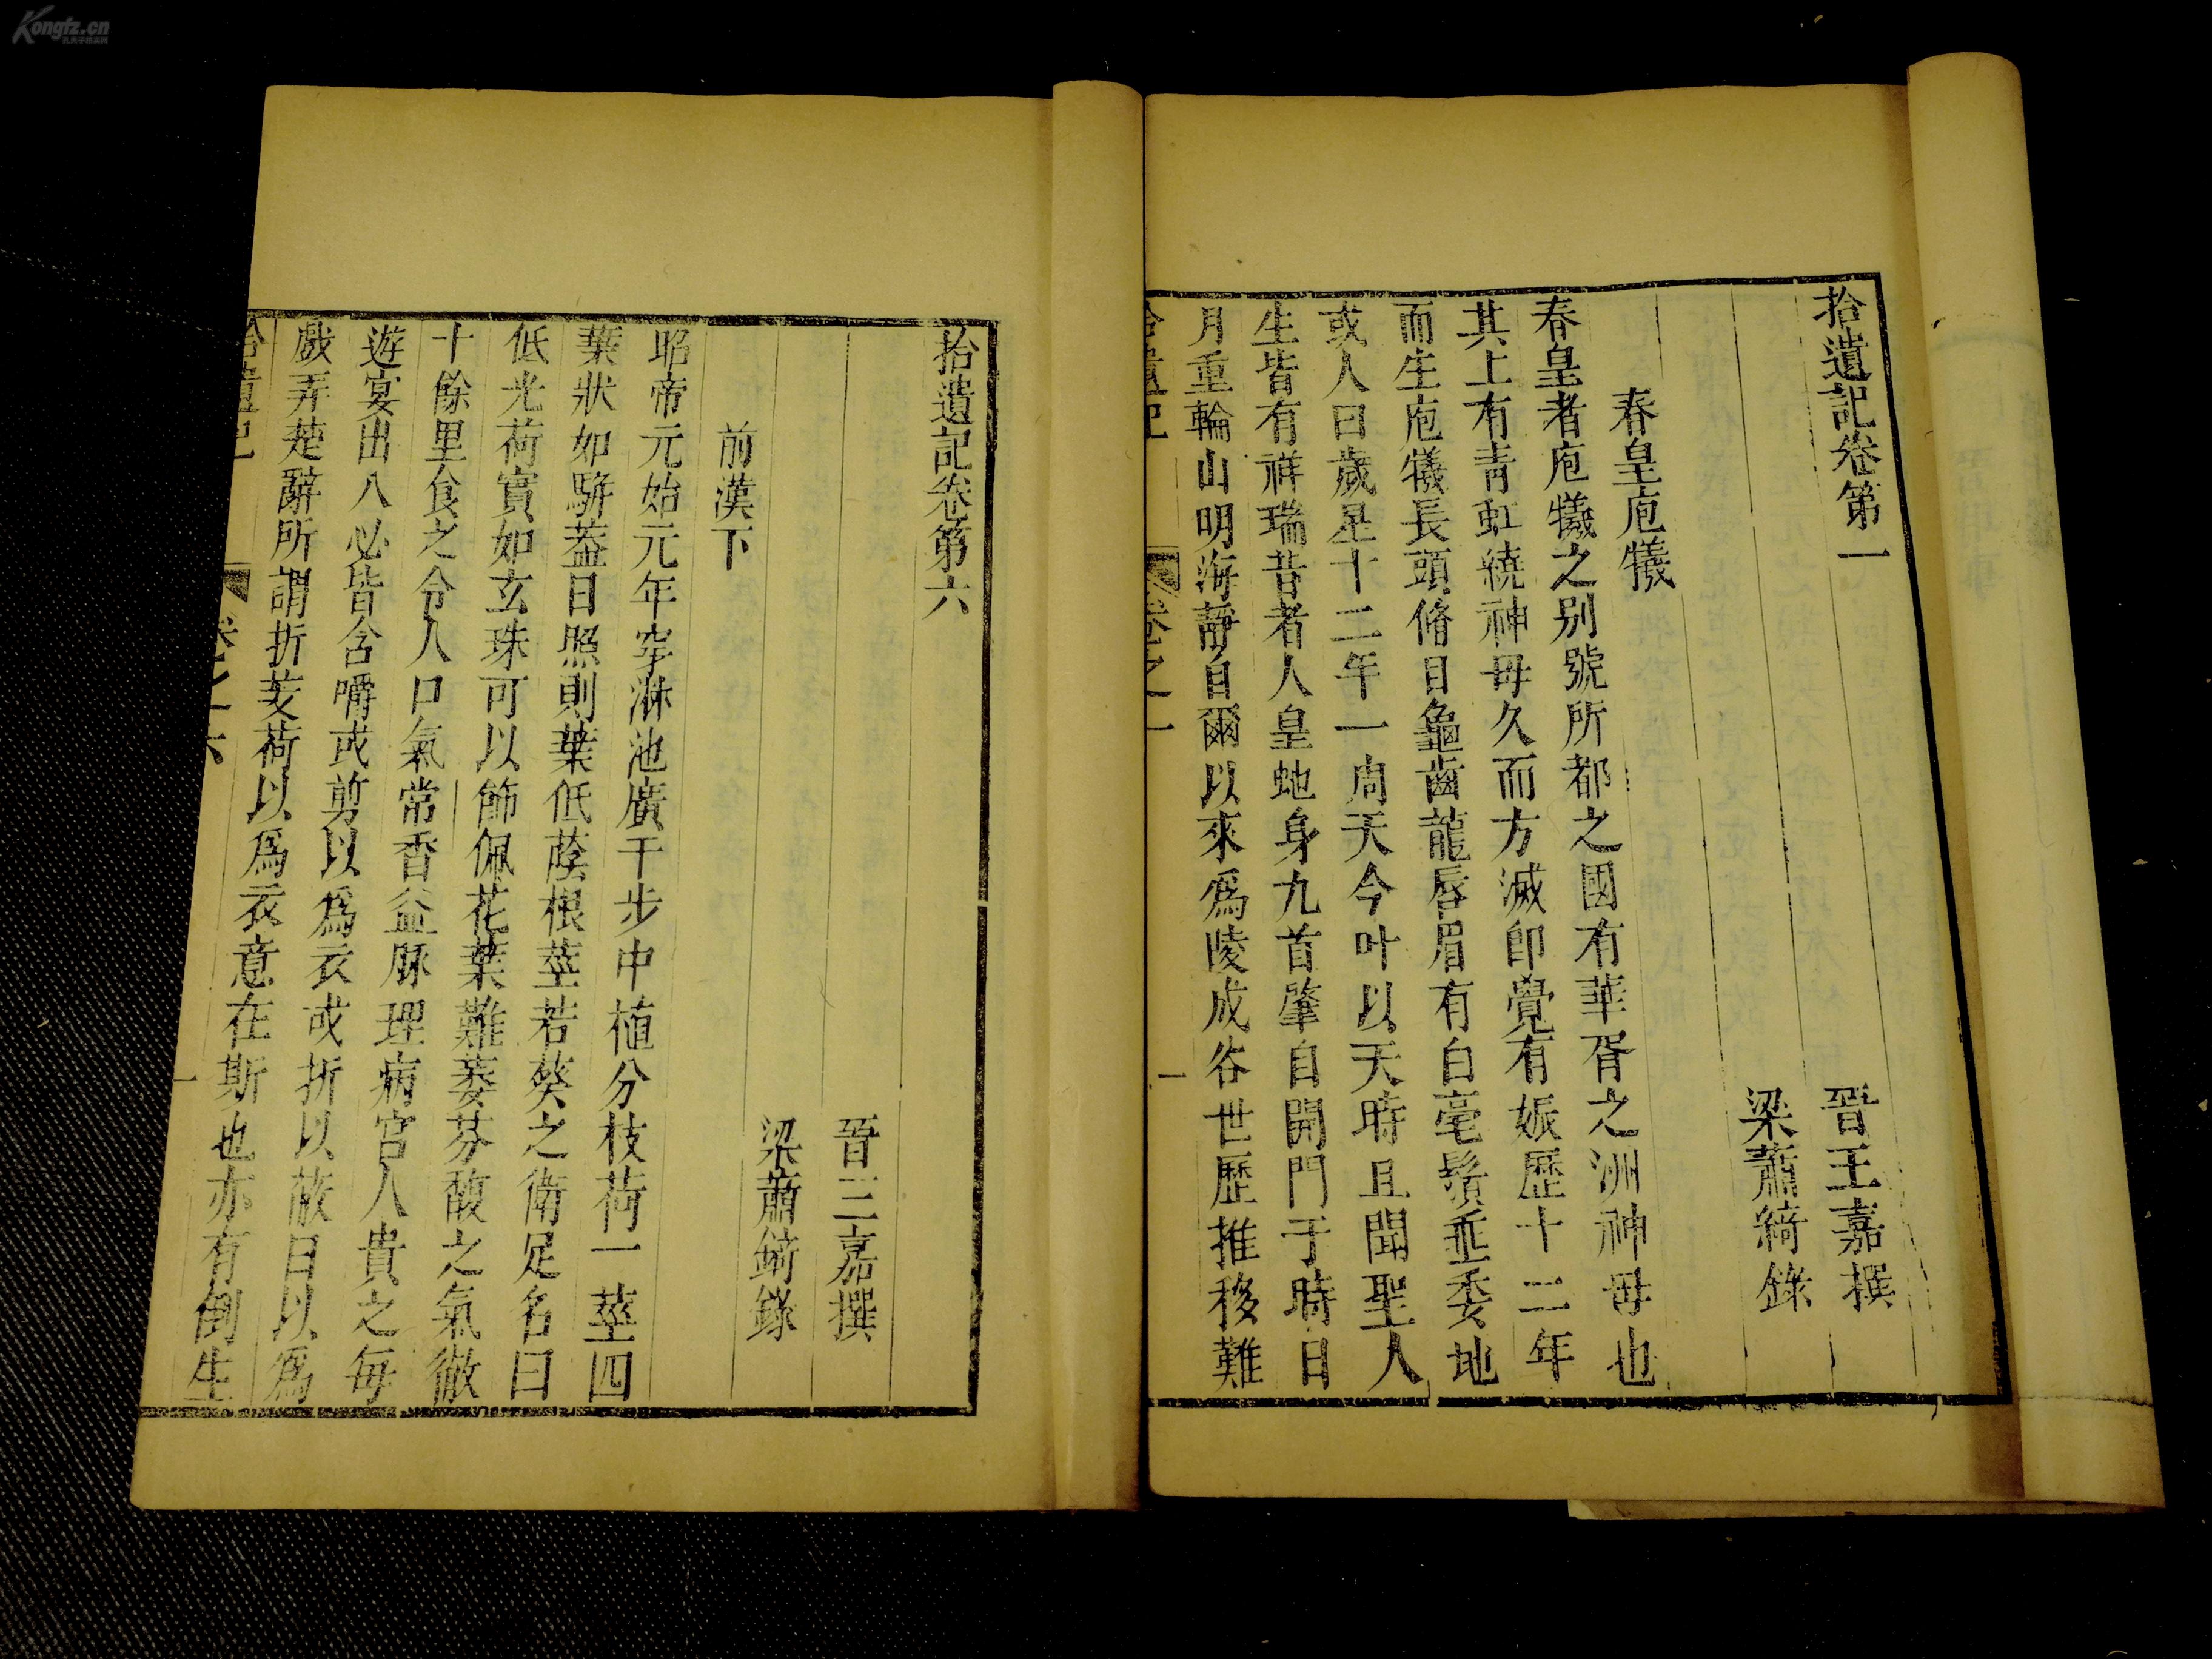 拾遺記卷第一
晉王嘉撰
梁蕭綺錄
春皇庖犧
春皇者庖犧之別號所都之國有華胥之洲神母也
其上有青虹繞神母久而方滅卽覺有娠歷十二年
而生庖犧長頭脩目龜齒龍唇眉有白毫鬚垂委地
或人曰歲星十二年一周天今叶以天時且聞聖人
生皆有祥瑞昔者人皇蛇身九首肇自開門于時日
月重輪山明海靜自爾以來爲陵成谷世歷推移難
拾遺記
卷之一
一
拾遺記卷第六
晉王嘉撰
梁蕭綺錄
前漢下
昭帝元始元年穿淋池廣千步中植分枝荷一莖四
葉狀如駢葢日照則葉低蔭根莖若葵之衛足名曰
低光荷實如玄珠可以飾佩花葉難萎芬馥之氣徹
十餘里食之令人口氣常香益脉理病宮人貴之每
遊宴出入必皆含嚼或剪以爲衣或折以蔽日以爲
戲弄楚辭所謂折芰荷以爲衣意在斯也亦有倒生
拾遺記
卷之六
一
Kongfz.cn